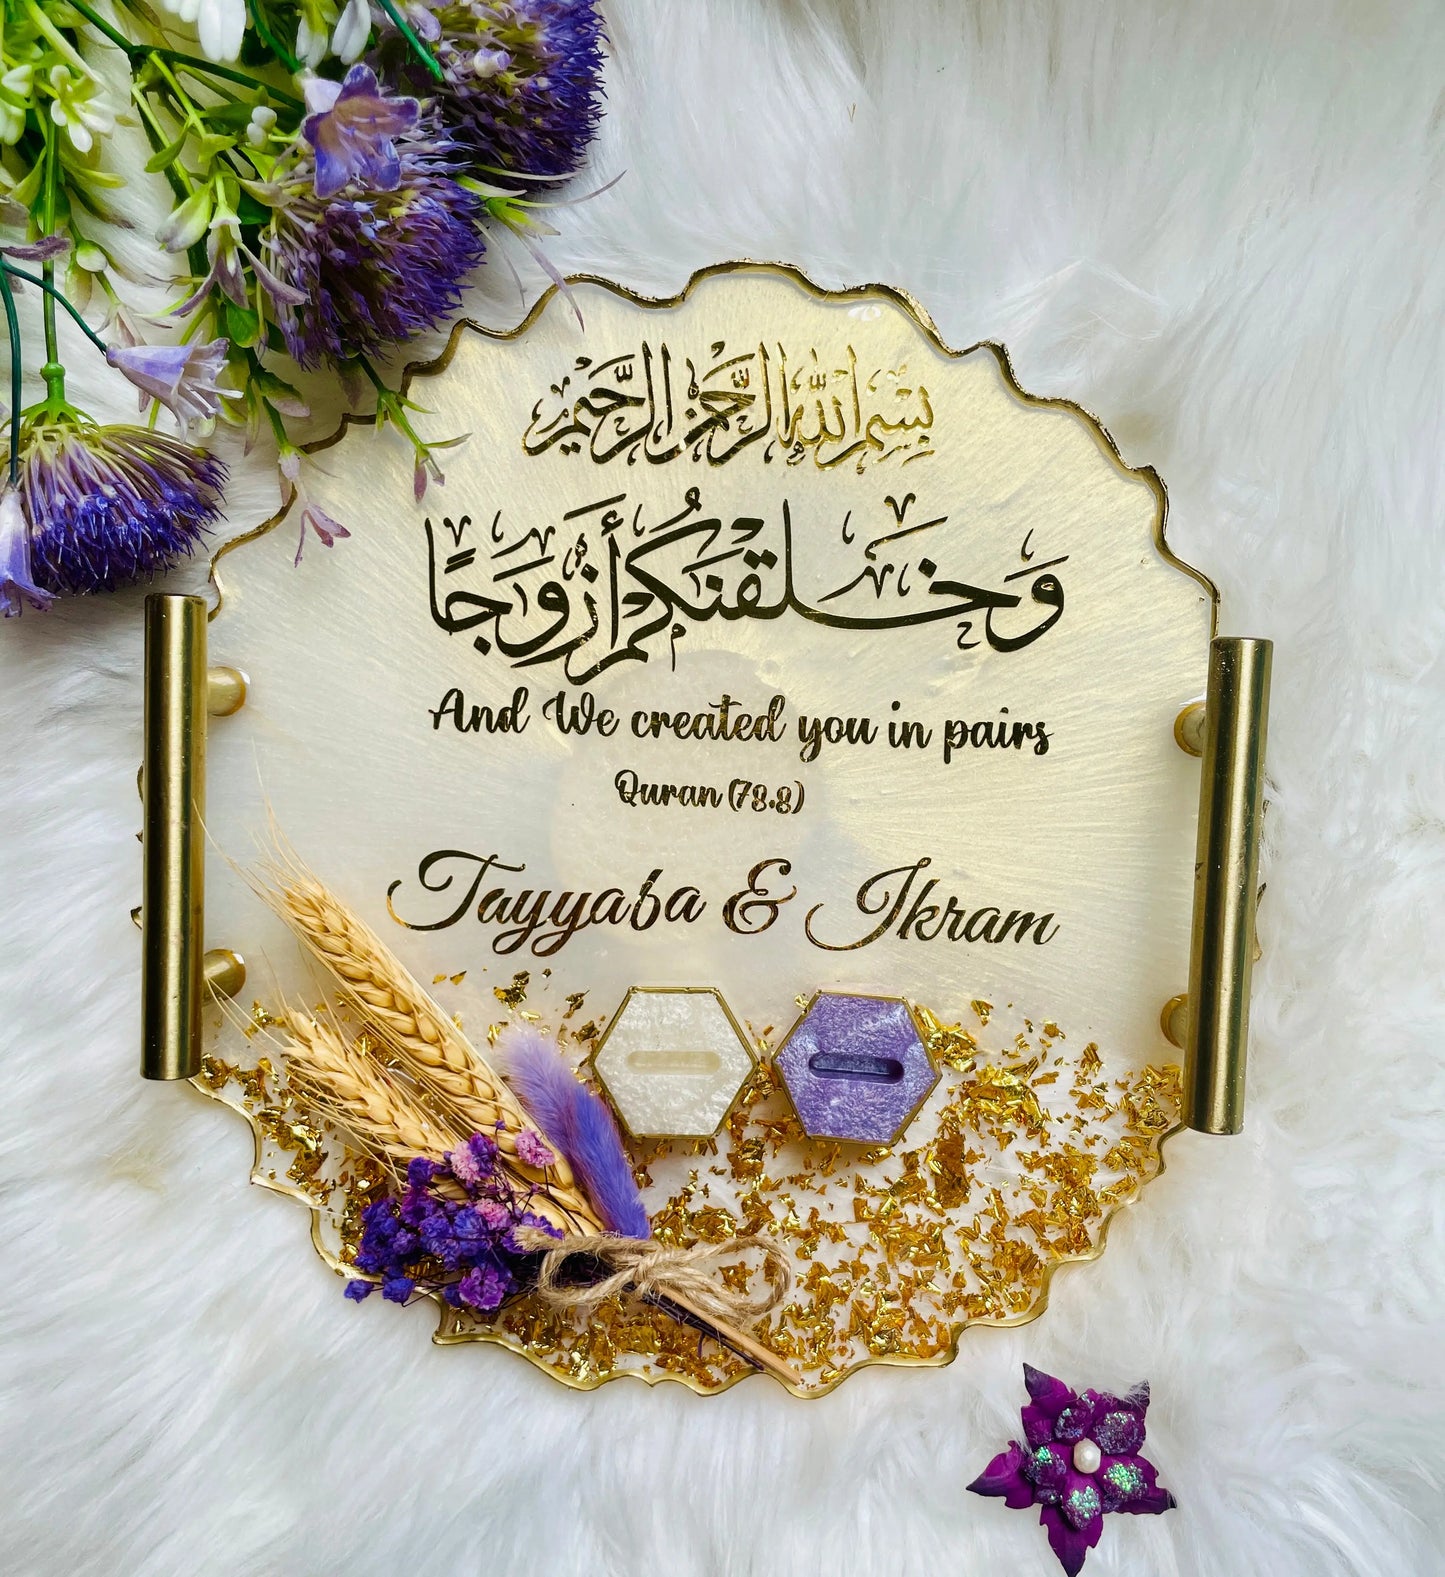 بِسْمِ اللّٰهِ الرَّحْمٰنِ الرَّحِيْمِ
وَخَلَقْنَكُمْ أَزْوَجًا
And We created you in pairs
Quran (78:8)
Tayyaba & Ikram